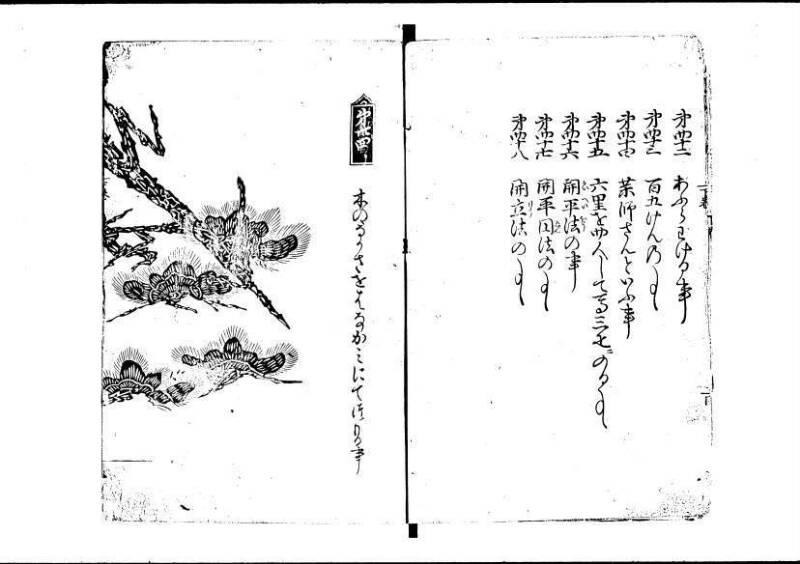 第四十二 あふらわける事
第四十三 百五けんの事
第四十四 薬師さんといふ事
第四十五 六里を四人して馬三疋にのる事
第四十六 開平法の事
第四十七 開平円法の事
第四十八 開立法の事
第卅四
木のながさをはなかみにてつもる事